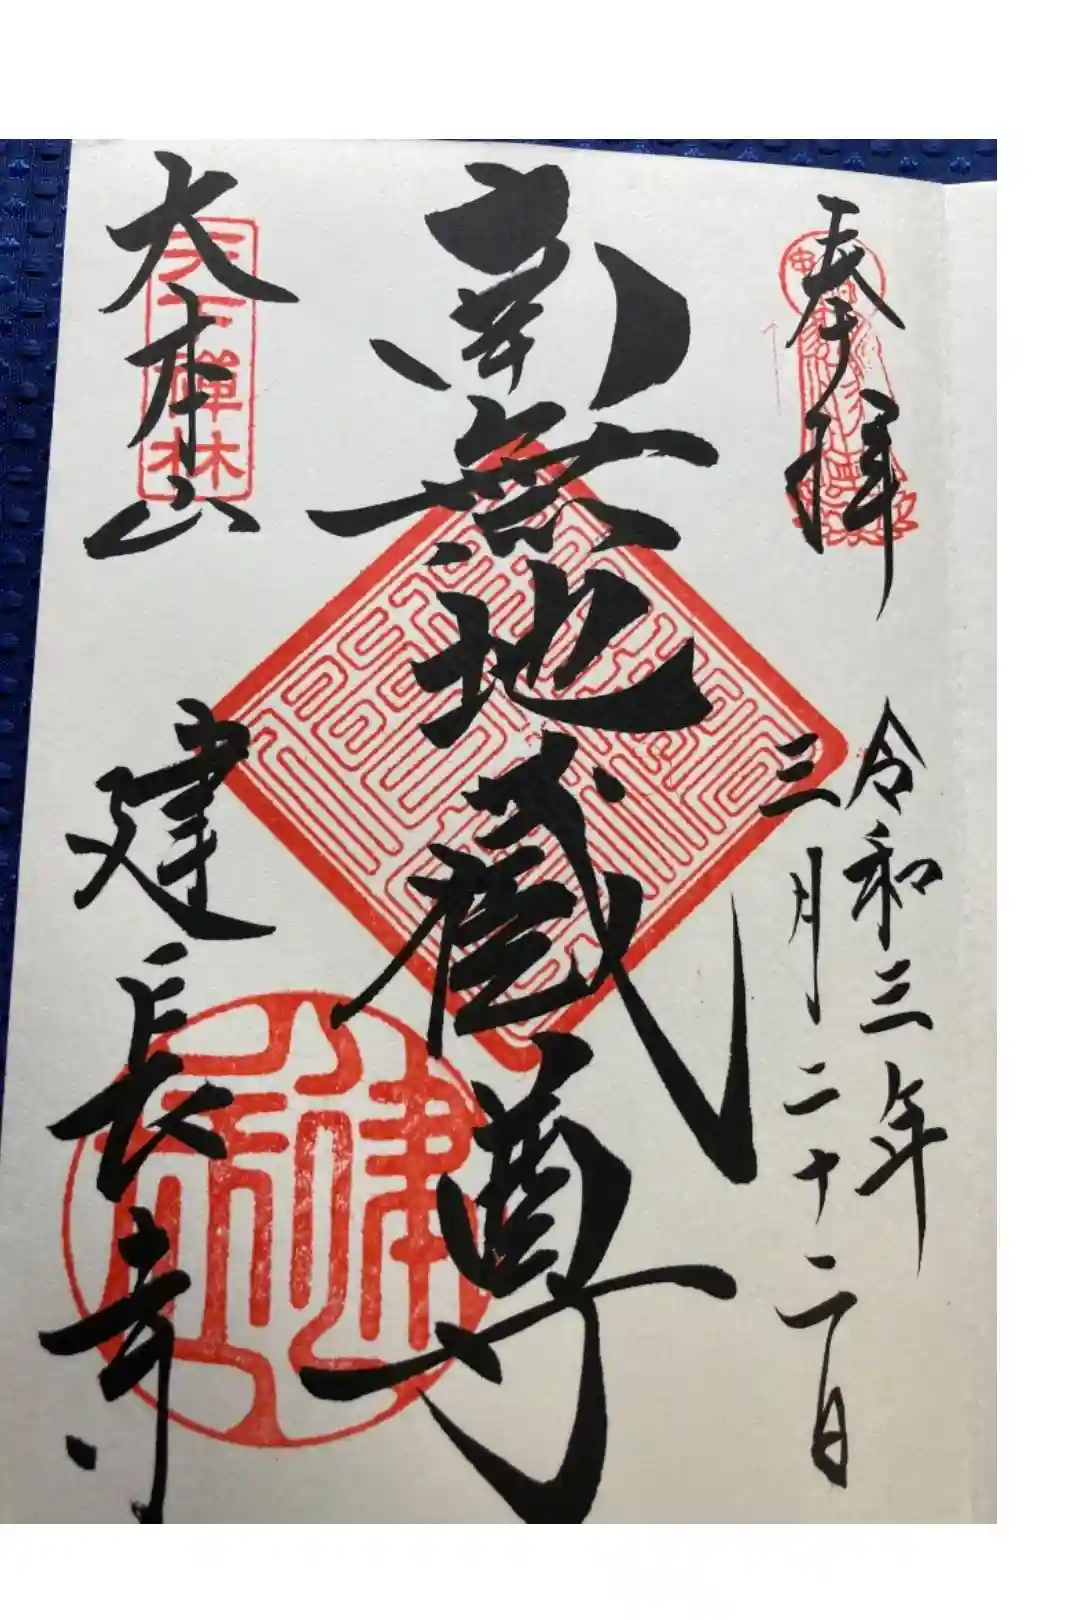 奉拝
令和三年
三月二十二日
南無地蔵尊
大本山
建長寺
天下禅林